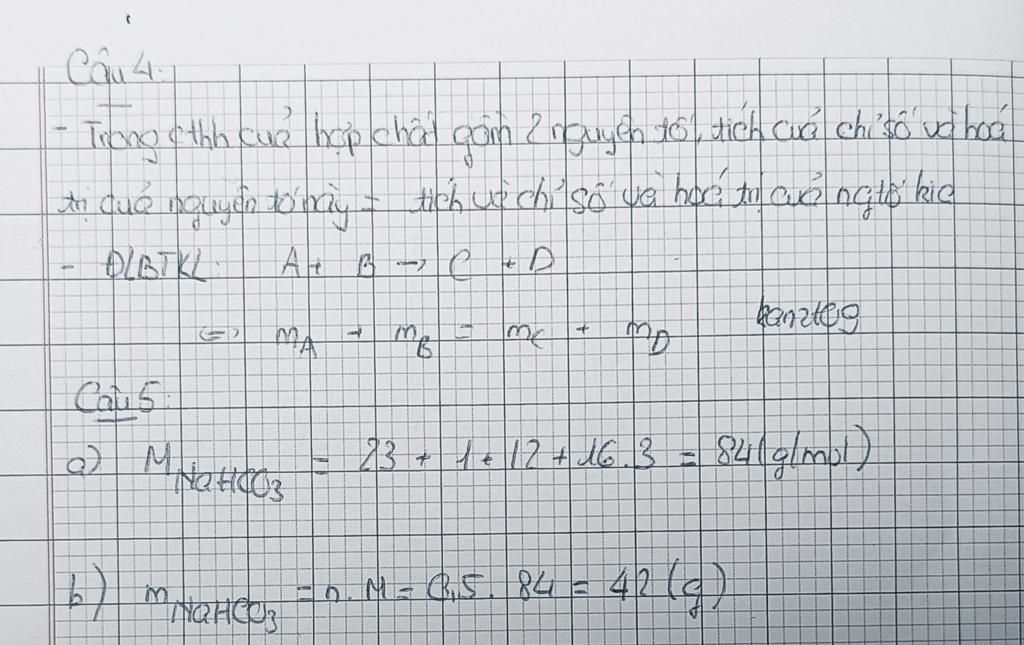 Câu 4:
- Trong cthh của hợp chất gồm 2 nguyên tố, tích của chỉ số và hoá
trị của nguyên tố này = tích và chỉ số và hoá trị của ngtố kia
- ĐLBTKL: A + B → C + D
⇔ mA + mB = mC + mD
Câu 5:
a) M NaHCO3 = 23 + 1 + 12 + 16.3 = 84 (g/mol)
b) m NaHCO3 = n.M = 0,5. 84 = 42 (g)